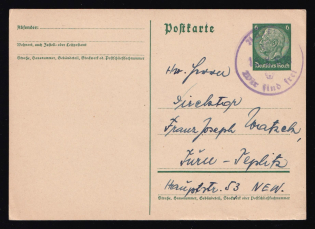 Postkarte
Absender:
Wohnort, auch Zustell- oder Leitpostamt
Straße, Hausnummer, Gebäudeteil, Stockwerk od. Postschließfachnummer
6 6
Deutsches Reich
Wir sind frei!
Direktor
Franz Joseph
Turn - Teplitz
Hauptstr. 53 NEW.
Straße, Hausnummer, Gebäudeteil, Stockwerk oder Postschließfachnummer